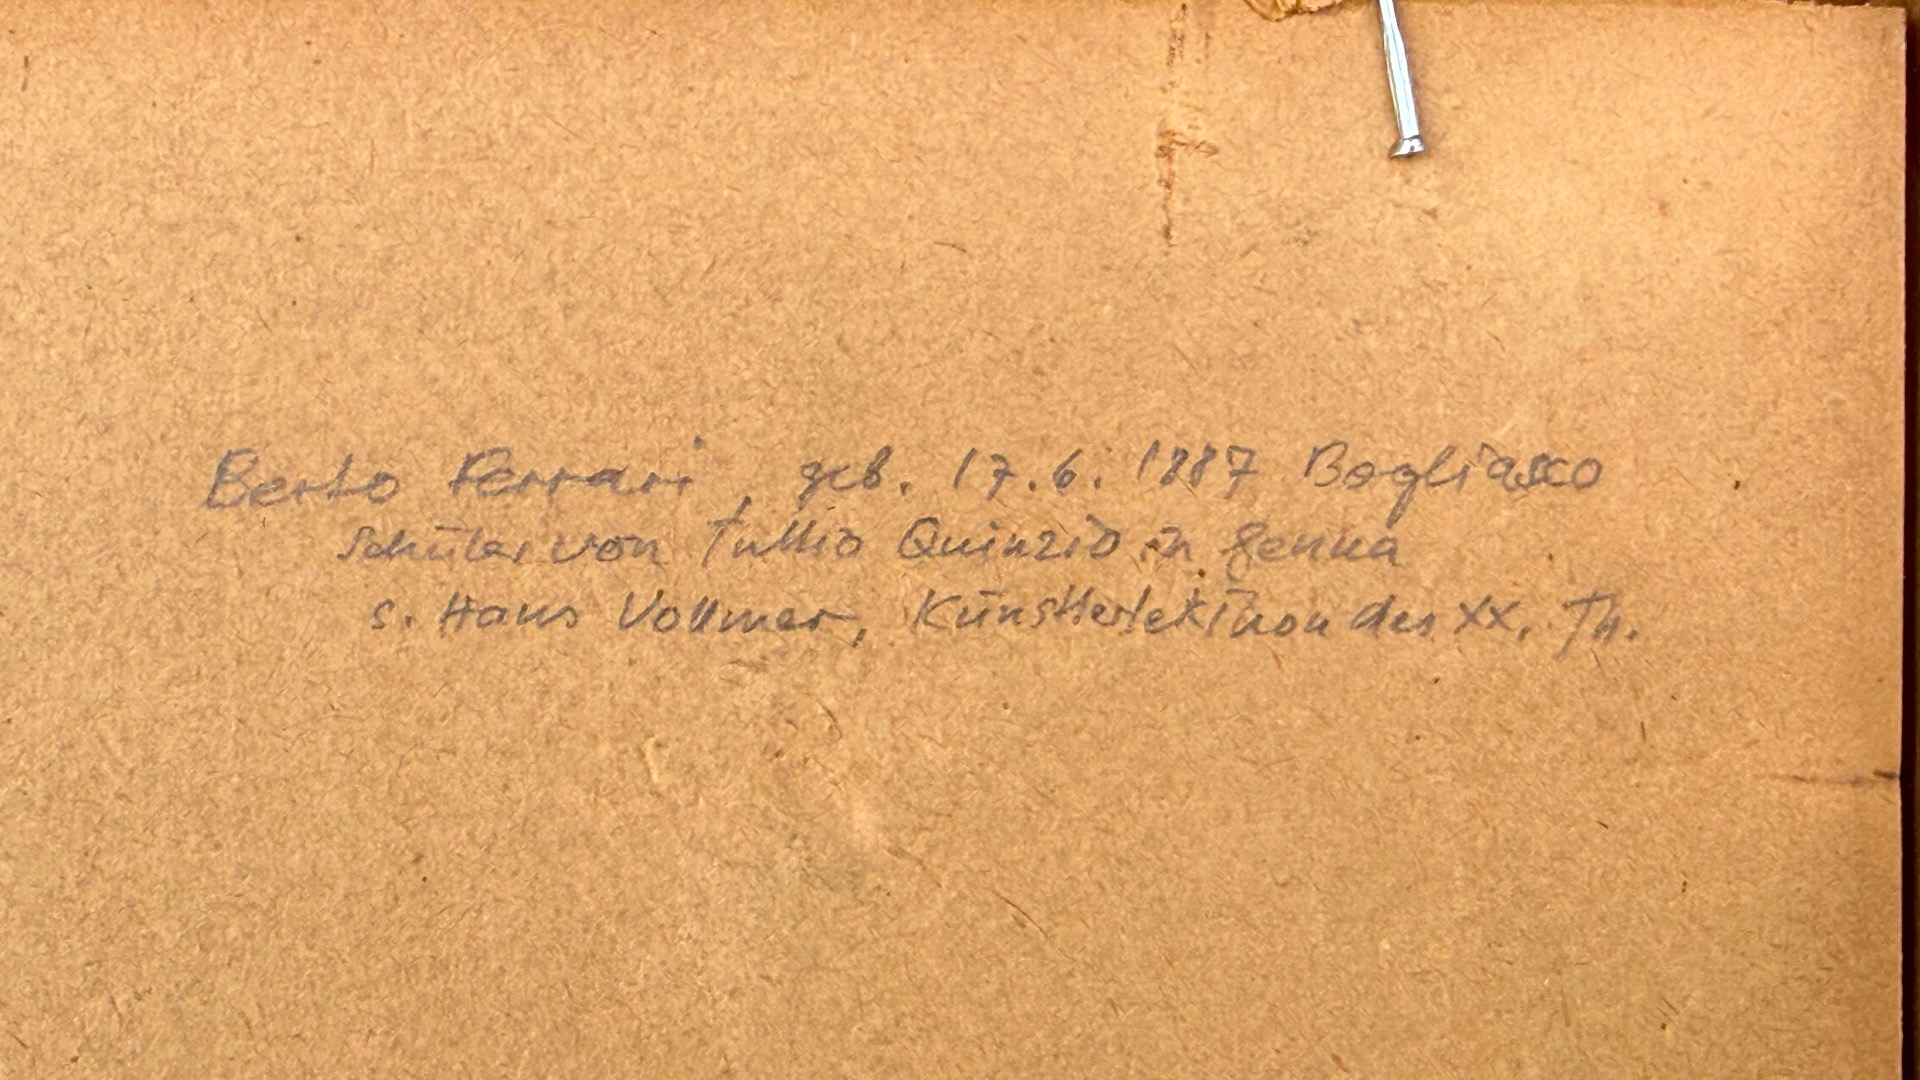 Berto Ferrari, geb. 17.6.1887 Bogliasco
Schüler von Tullio Quinzio in Genua
s. Hans Vollmer, Künstlerlexikon des XX. Jh.